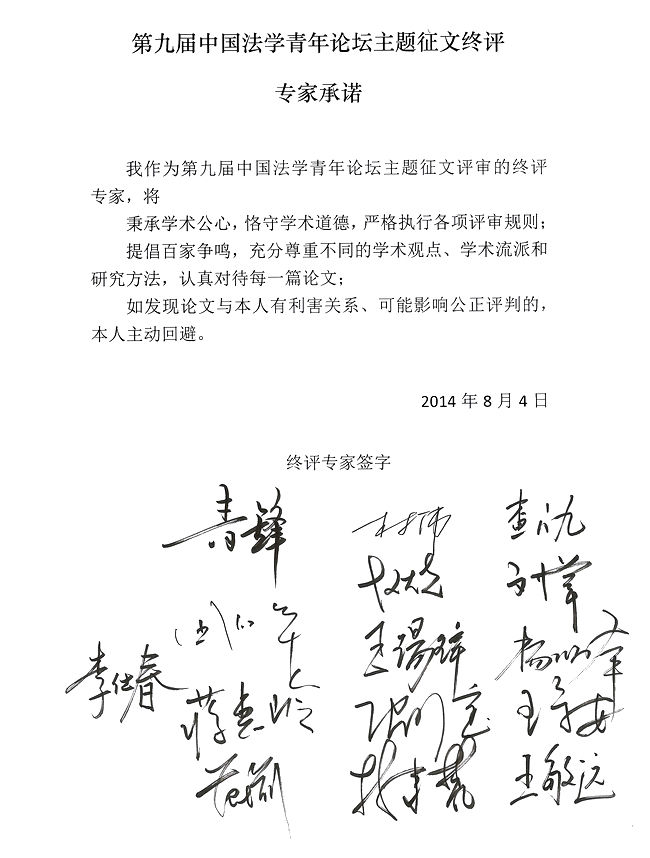 第九届中国法学青年论坛主题征文终评
专家承诺
我作为第九届中国法学青年论坛主题征文评审的终评
专家，将
秉承学术公心，恪守学术道德，严格执行各项评审规则；
提倡百家争鸣，充分尊重不同的学术观点、学术流派和
研究方法，认真对待每一篇论文；
如发现论文与本人有利害关系、可能影响公正评判的，
本人主动回避。
2014 年 8 月 4 日
终评专家签字
青锋
李仕春
王敏远